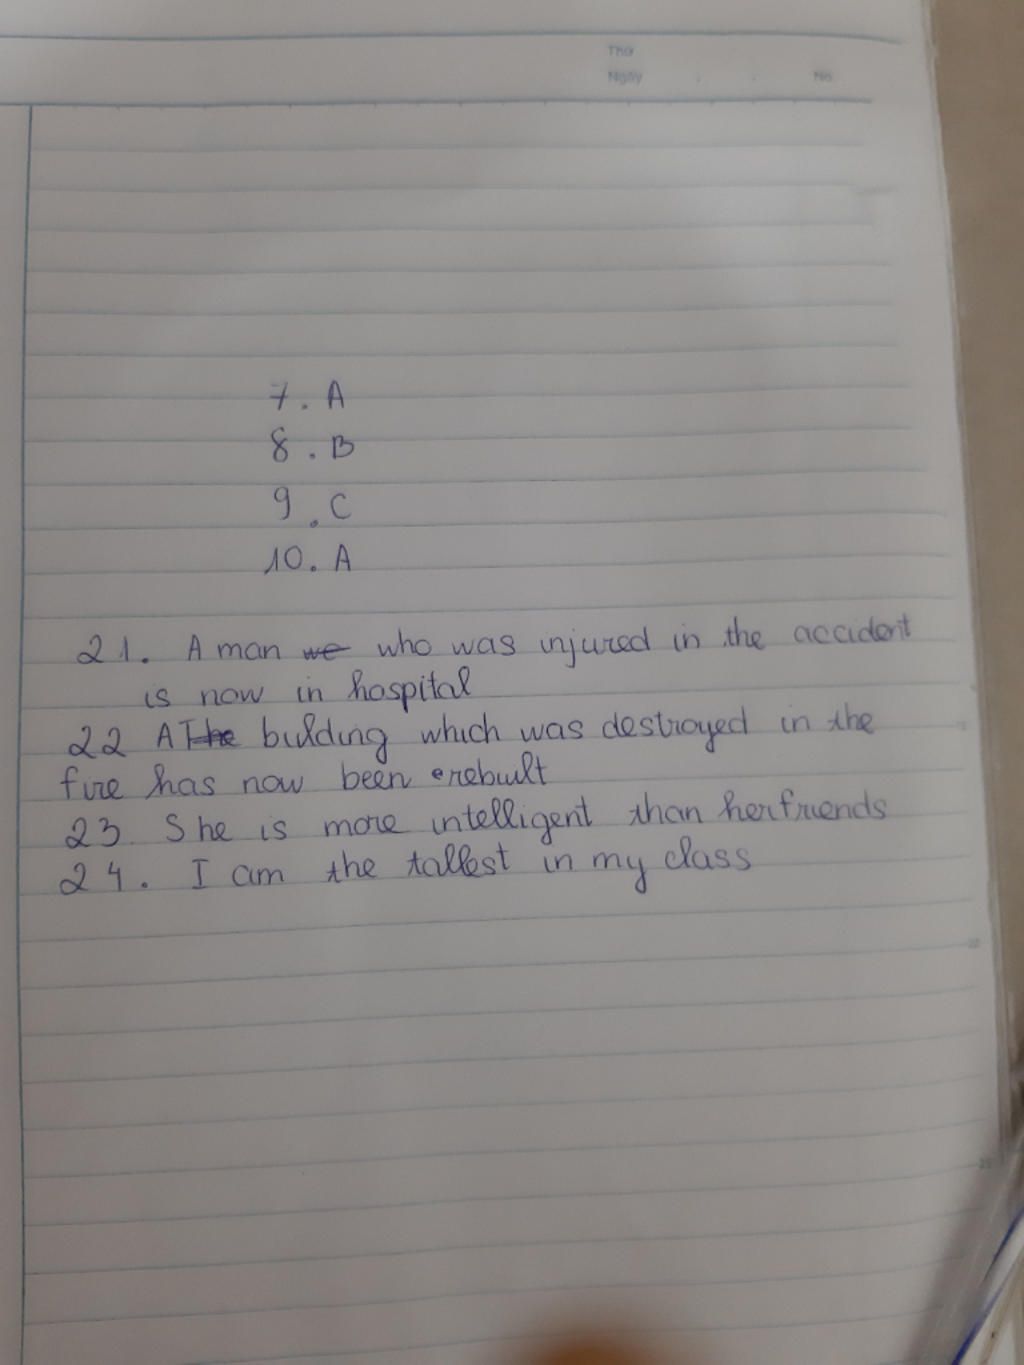 Thứ
Ngày . . No.
7. A
8. B
9. C
10. A
21. A man we who was injured in the accident
is now in hospital
22 A The building which was destroyed in the
fire has now been rebuilt
23. She is more intelligent than her friends
24. I am the tallest in my class